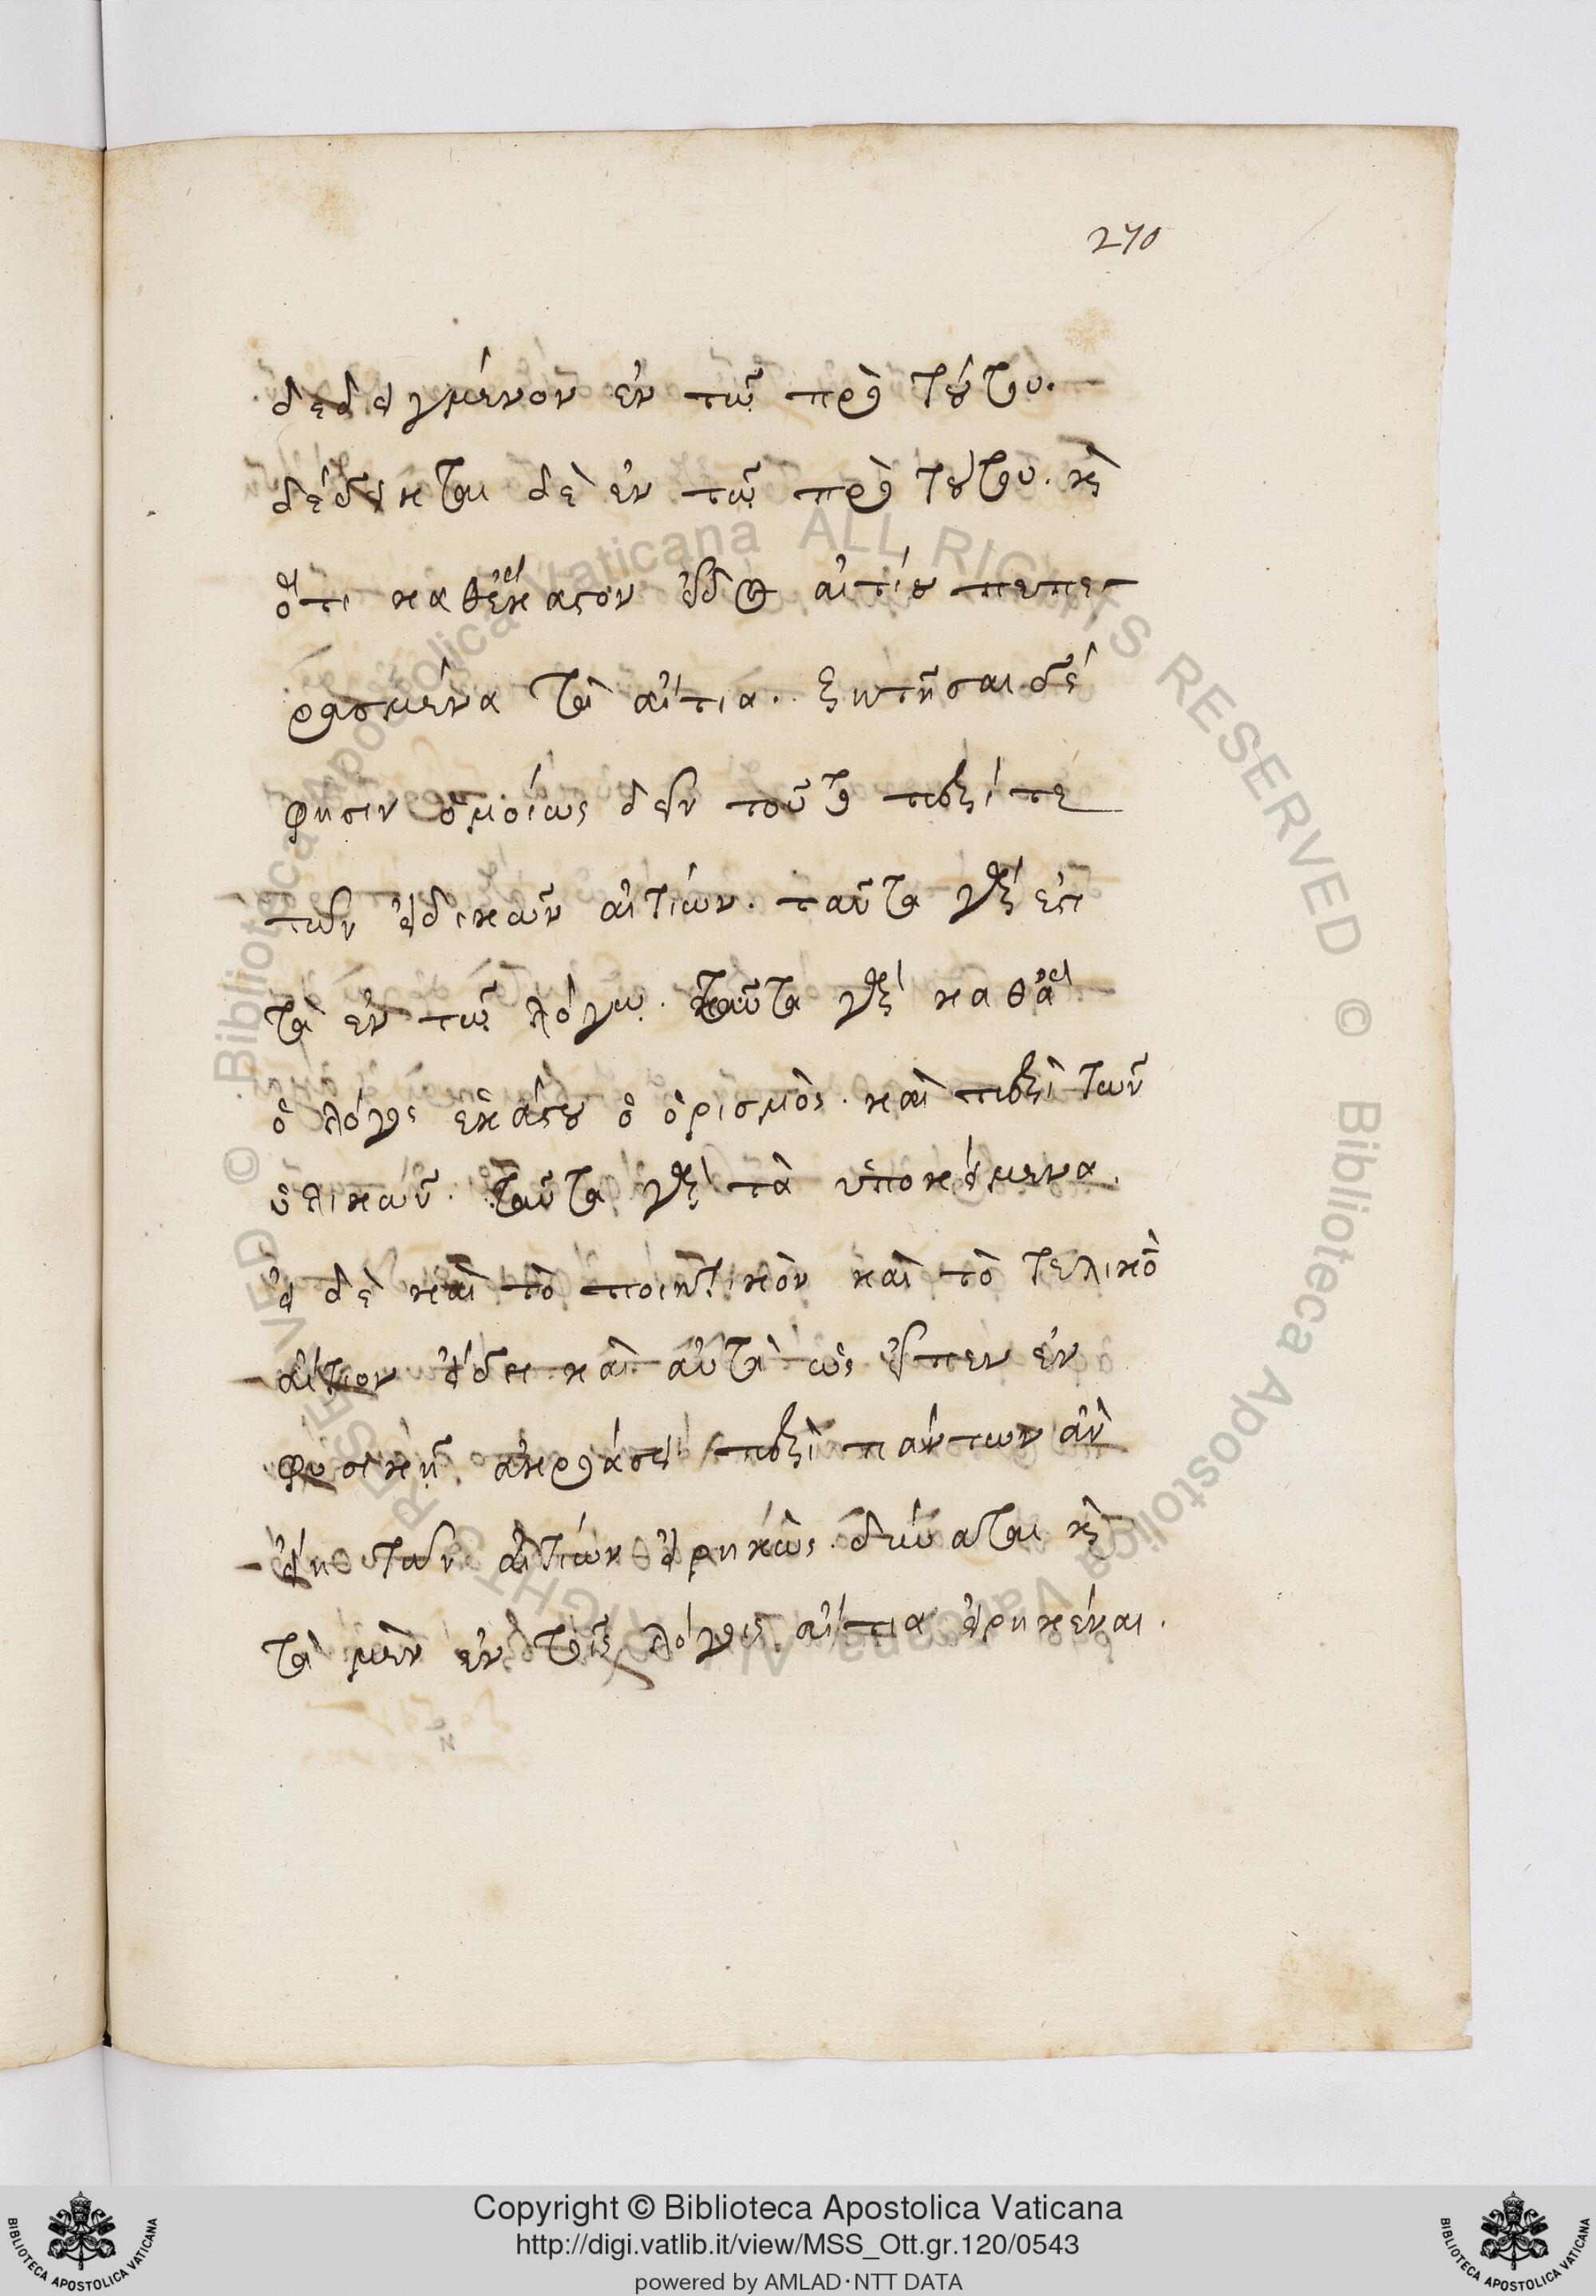 270
δεδειγμένον ἐν τῶ πρὸ τούτου.
δέδεικται δὲ ἐν τῶ πρὸ τούτου. κὶ
ὅτι καθ' ἕκαστον εἶδος αἰτίου πεπε-
ρασμένα τὰ αἴτια. ζητῆσαι δέ
φησιν ὁμοίως δεῖν τοῦτο περί τε
τῶν εἰδικῶν αἰτίων. ταῦτα γάρ ἐστι
τὰ ἐν τῶ λόγω. ταῦτα γάρ καθ' ἃ
ὁ λόγος ἑκάστου ὁ ὁρισμὸς. καὶ περὶ τῶν
ὑλικῶν. ταῦτα γάρ τὰ ὑποκείμενα.
εἰ δὲ καὶ τὸ ποιητικὸν καὶ τὸ τελικὸ
αἴτιον εἴδη καὶ αὐτὰ ὡς εἶπεν ἐν
φυσικῆ ἀκροάσει περὶ πάντων ἂν
εἴη τῶν αἰτίων εἰρηκὼς. δύναται κὶ
τὰ μὲν ἐν τοῖς λόγοις αἴτια εἰρηκέναι.
Copyright © Biblioteca Apostolica Vaticana
http://digi.vatlib.it/view/MSS_Ott.gr.120/0543
powered by AMLAD·NTT DATA
BIBLIOTECA APOSTOLICA VATICANA
BIBLIOTECA APOSTOLICA VATICANA
© Biblioteca Apostolica Vaticana ALL RIGHTS RESERVED © Biblioteca Apostolica Vaticana ALL RIGHTS RESERVED